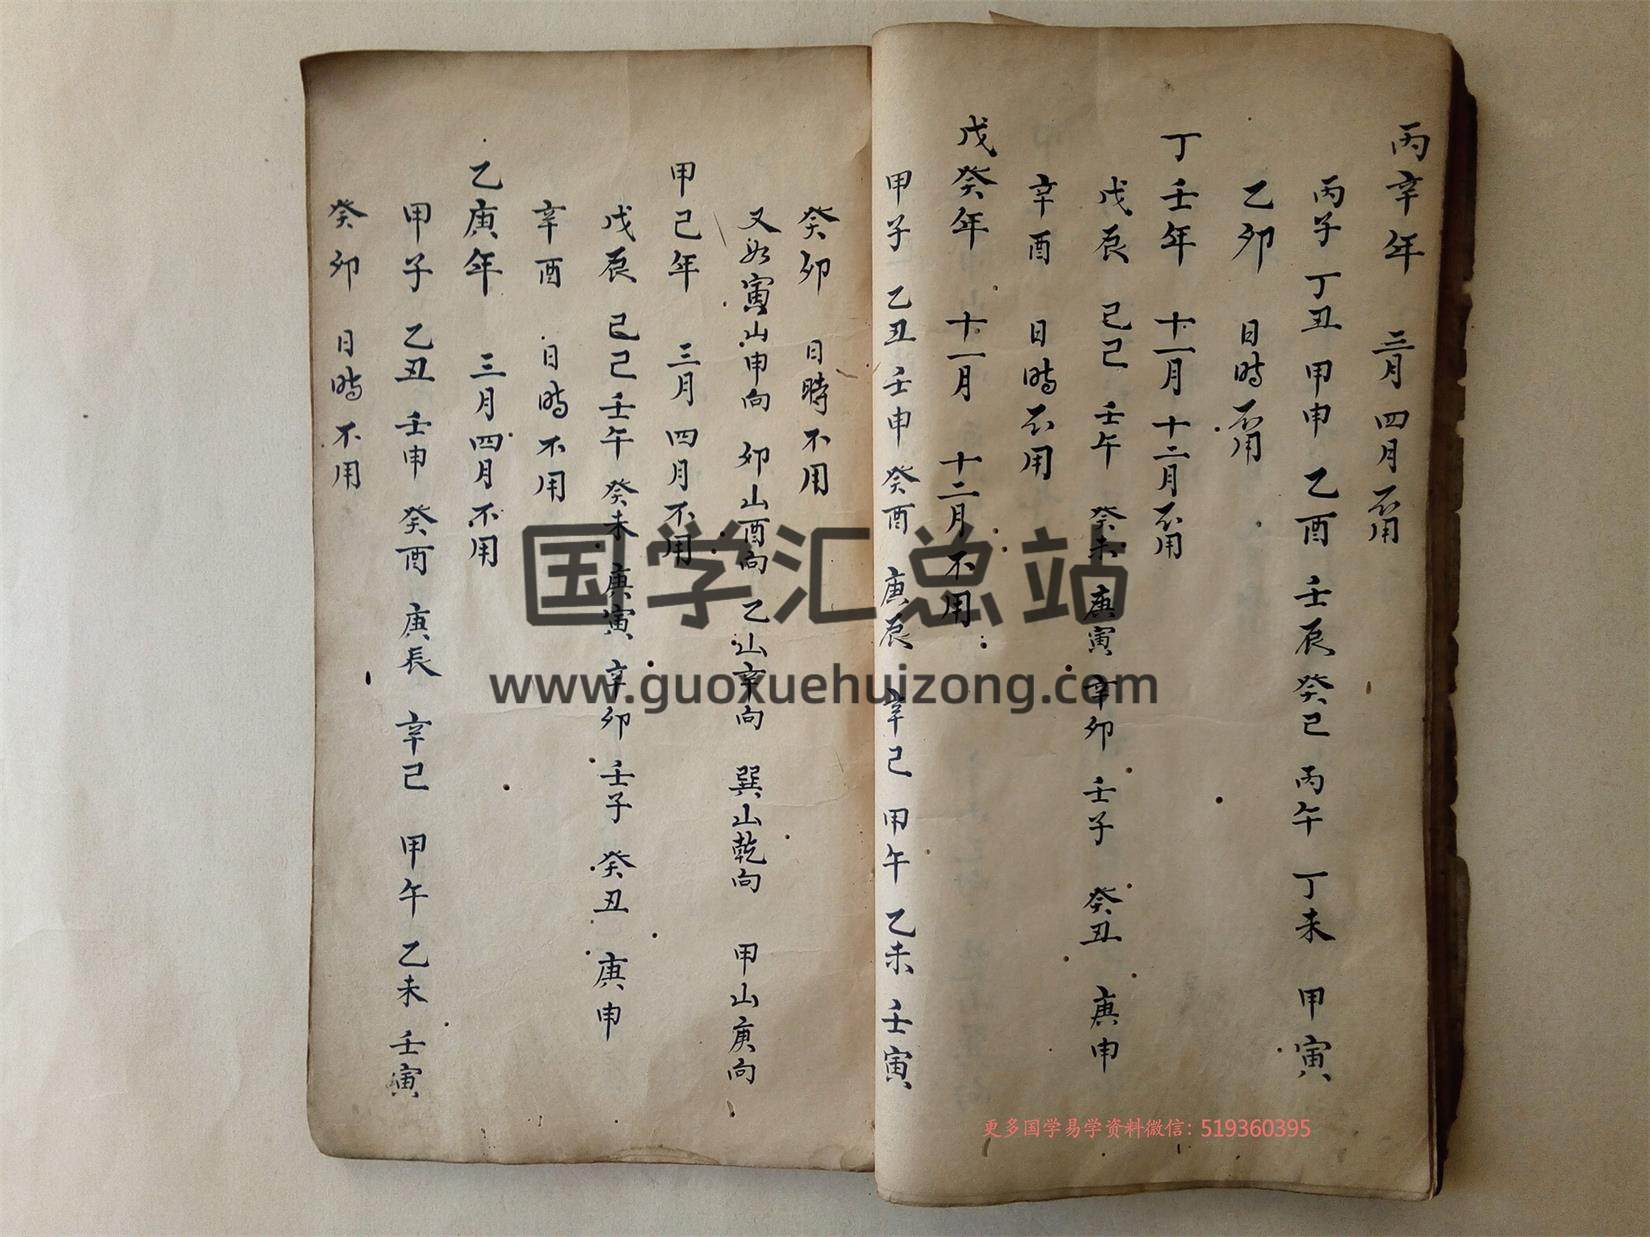 丙辛年 三月四月不用
丙子 丁丑 甲申 乙酉 壬辰 癸巳 丙午 丁未 甲寅
乙卯 日時不用
丁壬年 十一月 十二月不用
戊辰 己巳 壬午 癸未 庚寅 辛卯 壬子 癸丑 庚申
辛酉 日時不用
戊癸年 十一月 十二月不用
甲子 乙丑 壬申 癸酉 庚辰 辛巳 甲午 乙未 壬寅
癸卯 日時不用
又如寅山申向 卯山酉向 乙山辛向 巽山乾向 甲山庚向
甲己年 三月四月不用
戊辰 己巳 壬午 癸未 庚寅 辛卯 壬子 癸丑 庚申
辛酉 日時不用
乙庚年 三月四月不用
甲子 乙丑 壬申 癸酉 庚辰 辛巳 甲午 乙未 壬寅
癸卯 日時不用
国学汇总站
www.guoxuehuizong.com
更多国学易学资料微信：519360395